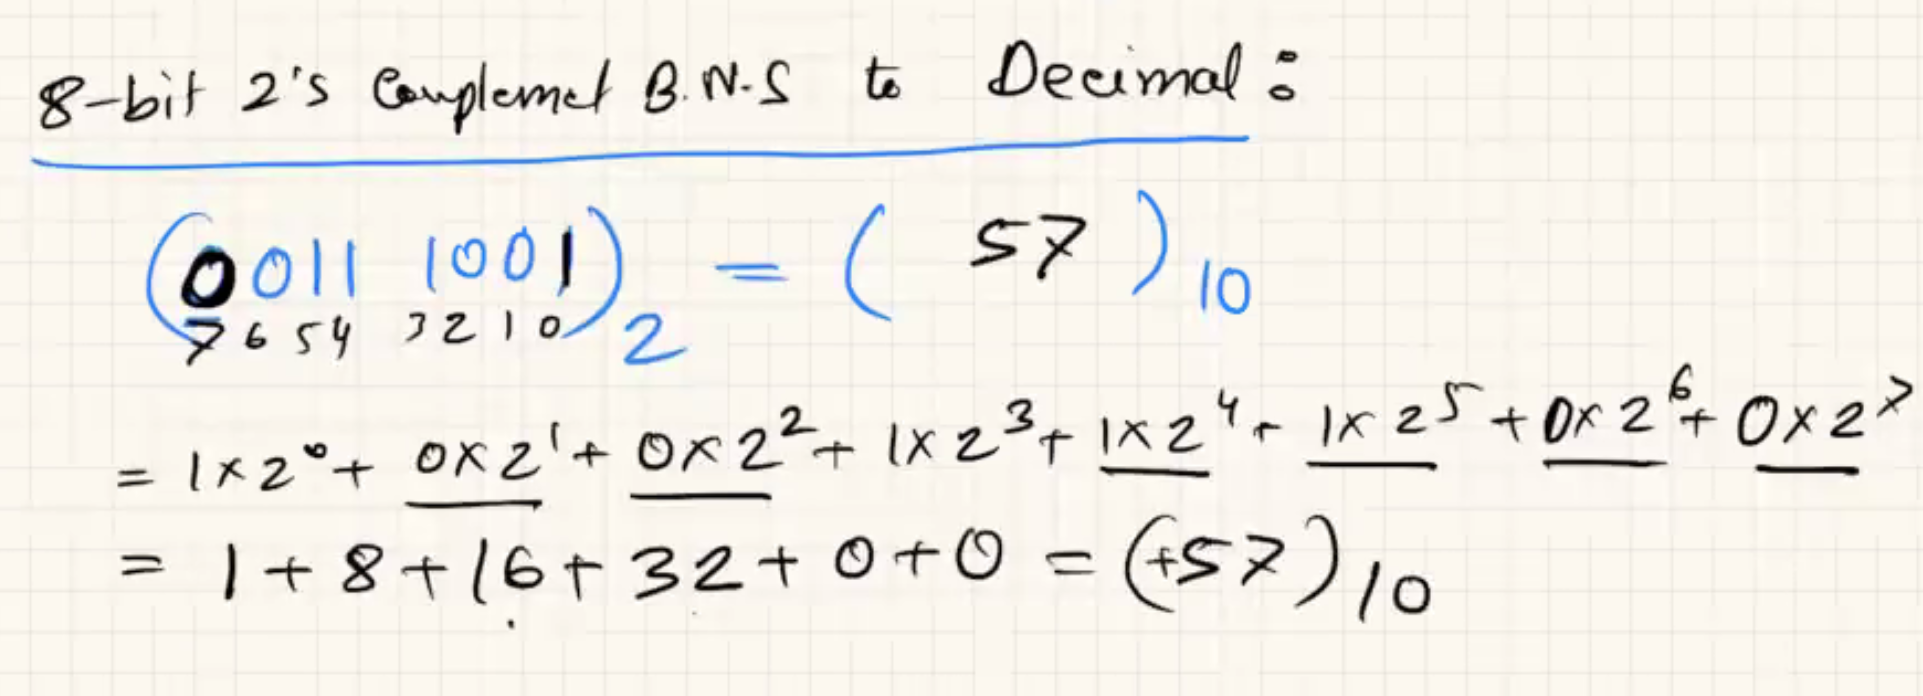 8-bit 2's Complemet B.N.S to Decimal:
(0011 1001)₂ = ( 57 )₁₀
7 6 5 4 3 2 1 0
= 1×2⁰ + 0×2¹ + 0×2² + 1×2³ + 1×2⁴ + 1×2⁵ + 0×2⁶ + 0×2⁷
= 1 + 8 + 16 + 32 + 0 + 0 = (+57)₁₀